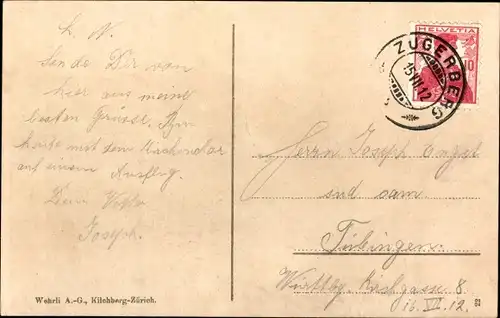 L. V.
Sende Dir von
hier aus meine
besten Grüsse. Bin
heute mit dem Kirchenchor
auf einem Ausflug.
Dein Vetter
Joseph.
HELVETIA
10
ZUGERBERG
15 VII 12
Herrn Joseph
stud cam.
Tübingen
Württbg. Kirchgasse 8
15. VII. 12.
Wehrli A.-G., Kilchberg-Zürich.